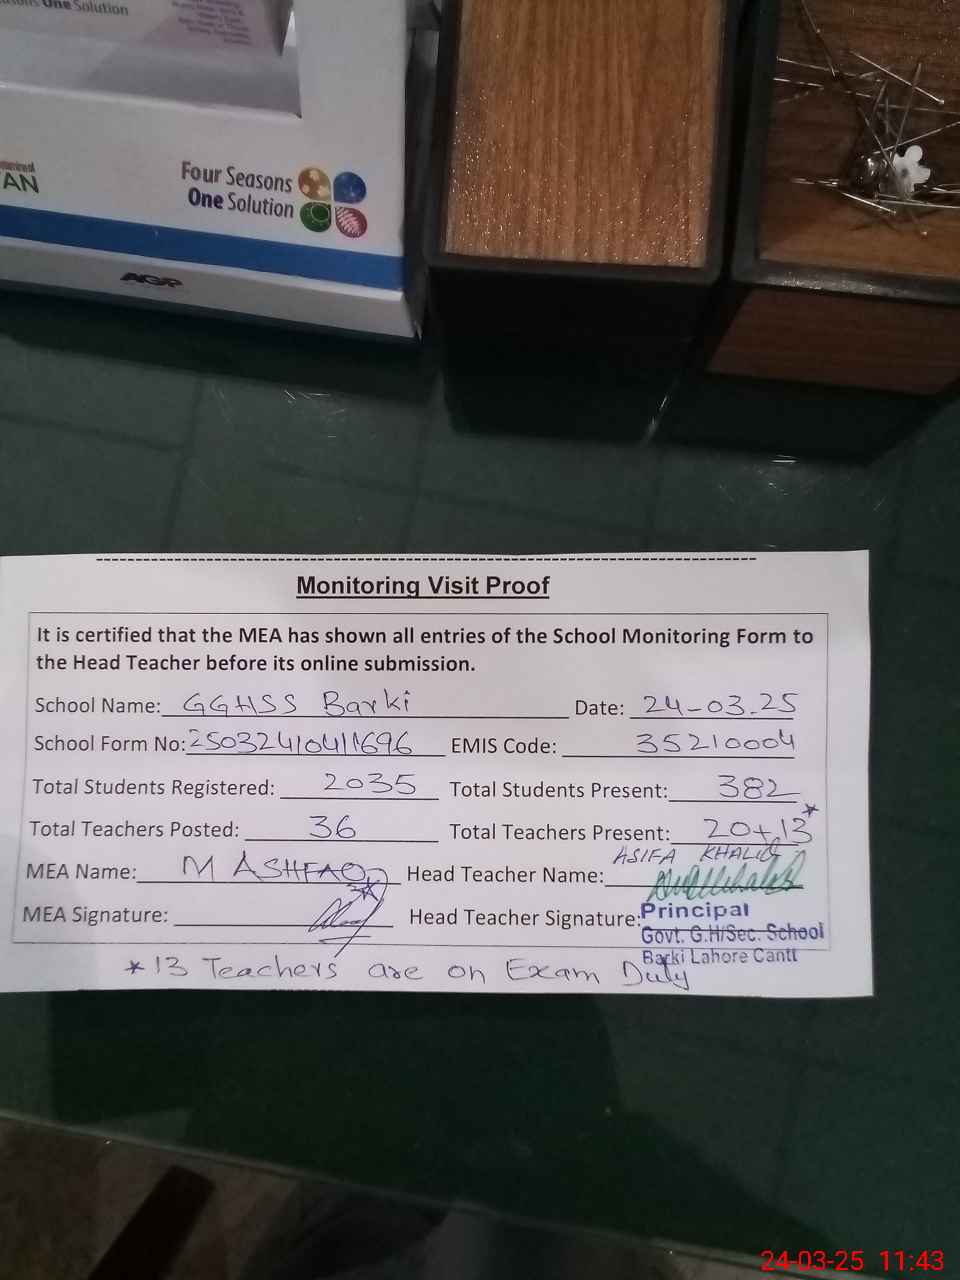 One Solution
Four Seasons
One Solution
TAN
AGP
Monitoring Visit Proof
It is certified that the MEA has shown all entries of the School Monitoring Form to
the Head Teacher before its online submission.
School Name: GGHSS Barki Date: 24-03-25
School Form No: 25032410411696 EMIS Code: 35210004
Total Students Registered: 2035 Total Students Present: 382
Total Teachers Posted: 36 Total Teachers Present: 20+13*
MEA Name: M ASHFAQ Head Teacher Name: ASIFA KHALID
MEA Signature: Head Teacher Signature:
Principal
Govt. G.H/Sec. School
Barki Lahore Cantt
* 13 Teachers are on Exam Duty
24-03-25 11:43